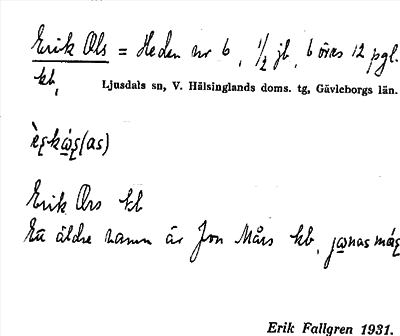 Erik Ols = Heden nr 6, 1/2 jb, 6 öres 12 pgl.
kb,
Ljusdals sn, V. Hälsinglands doms. tg, Gävleborgs län.
(as)
Erik Ors kb
Ett äldre namn är Jon Mårs kb,
Erik Fallgren 1931.